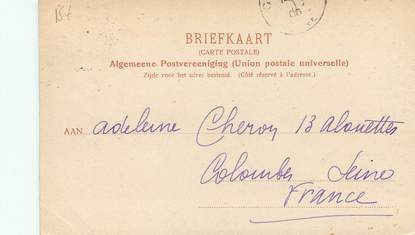 BRIEFKAART
(CARTE POSTALE)
Algemeene Postvereeniging (Union postale universelle)
Zijde voor het adres bestemd. (Côté réservé à l'adresse.)
AAN adeleine Cheron 13 alouettes
Colombes Seine
France